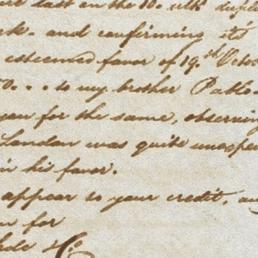 last on the 10. ulto dupl
and confirming its
esteemed favor of 19th Octo
to my brother Pablo
you for the same, observing
London was quite unexpe
in his favor.
appear to your credit, an
for
hole & Co